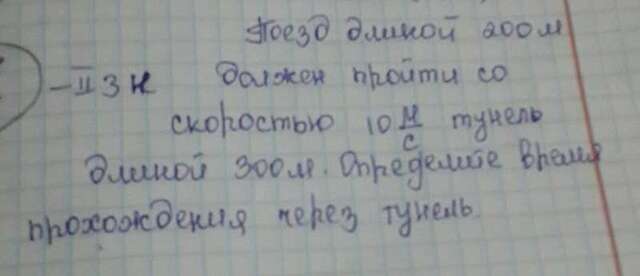 Поезд длиной 200м
-II ЗН должен пройти со
скоростью 10 м/с тунель
длиной 300м. Определите время
прохождения через тунель